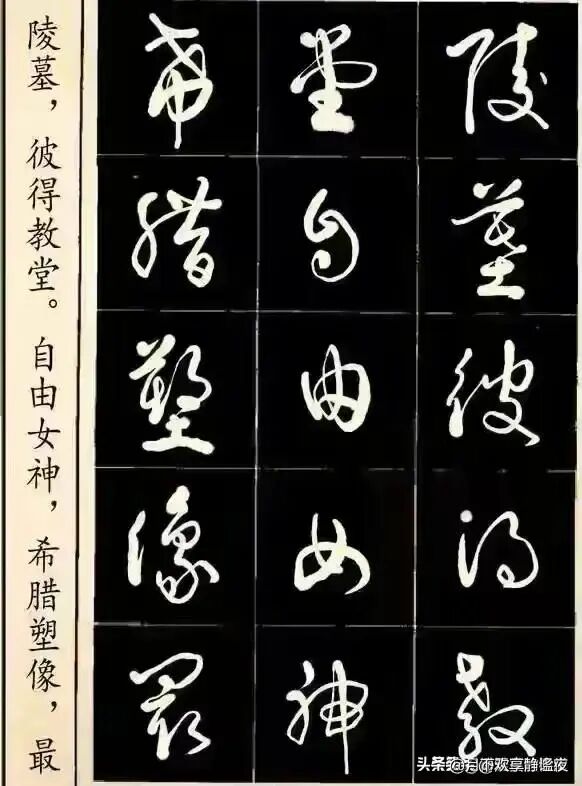 陵墓彼得教
堂自由女神
希腊塑像最
陵墓，彼得教堂。自由女神，希腊塑像，最
头条